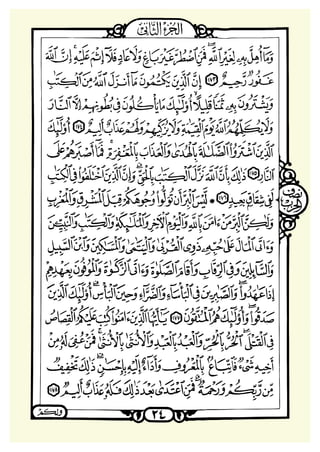 الجزء الثاني
وَمَا أُهِلَّ بِهِ لِغَيْرِ اللَّهِ فَمَنِ اضْطُرَّ غَيْرَ بَاغٍ وَلَا عَادٍ فَلَا إِثْمَ عَلَيْهِ إِنَّ اللَّهَ
غَفُورٌ رَحِيمٌ إِنَّ الَّذِينَ يَكْتُمُونَ مَا أَنْزَلَ اللَّهُ مِنَ الْكِتَٰبِ
وَيَشْتَرُونَ بِهِ ثَمَنًا قَلِيلًا أُولَٰئِكَ مَا يَأْكُلُونَ فِي بُطُونِهِمْ إِلَّا النَّارَ
وَلَا يُكَلِّمُهُمُ اللَّهُ يَوْمَ الْقِيَٰمَةِ وَلَا يُزَكِّيهِمْ وَلَهُمْ عَذَابٌ أَلِيمٌ أُولَٰئِكَ
الَّذِينَ اشْتَرَوُا الضَّلَٰلَةَ بِالْهُدَىٰ وَالْعَذَابَ بِالْمَغْفِرَةِ فَمَا أَصْبَرَهُمْ عَلَى
النَّارِ ذَٰلِكَ بِأَنَّ اللَّهَ نَزَّلَ الْكِتَٰبَ بِالْحَقِّ وَإِنَّ الَّذِينَ اخْتَلَفُوا فِي الْكِتَٰبِ
لَفِي شِقَاقٍ بَعِيدٍ لَيْسَ الْبِرَّ أَنْ تُوَلُّوا وُجُوهَكُمْ قِبَلَ الْمَشْرِقِ وَالْمَغْرِبِ
نصف الحزب
وَلَٰكِنَّ الْبِرَّ مَنْ ءَامَنَ بِاللَّهِ وَالْيَوْمِ الْآخِرِ وَالْمَلَٰئِكَةِ وَالْكِتَٰبِ وَالنَّبِيِّينَ
وَءَاتَى الْمَالَ عَلَىٰ حُبِّهِ ذَوِي الْقُرْبَىٰ وَالْيَتَٰمَىٰ وَالْمَسَٰكِينَ وَابْنَ السَّبِيلِ
وَالسَّائِلِينَ وَفِي الرِّقَابِ وَأَقَامَ الصَّلَوٰةَ وَءَاتَى الزَّكَوٰةَ وَالْمُوفُونَ بِعَهْدِهِمْ
إِذَا عَٰهَدُوا وَالصَّٰبِرِينَ فِي الْبَأْسَاءِ وَالضَّرَّاءِ وَحِينَ الْبَأْسِ أُولَٰئِكَ الَّذِينَ
صَدَقُوا وَأُولَٰئِكَ هُمُ الْمُتَّقُونَ يَٰأَيُّهَا الَّذِينَ ءَامَنُوا كُتِبَ عَلَيْكُمُ الْقِصَاصُ
فِي الْقَتْلَى الْحُرُّ بِالْحُرِّ وَالْعَبْدُ بِالْعَبْدِ وَالْأُنْثَىٰ بِالْأُنْثَىٰ فَمَنْ عُفِيَ لَهُ مِنْ
أَخِيهِ شَيْءٌ فَاتِّبَاعٌ بِالْمَعْرُوفِ وَأَدَاءٌ إِلَيْهِ بِإِحْسَٰنٍ ذَٰلِكَ تَخْفِيفٌ
مِنْ رَبِّكُمْ وَرَحْمَةٌ فَمَنِ اعْتَدَىٰ بَعْدَ ذَٰلِكَ فَلَهُ عَذَابٌ أَلِيمٌ
٢٤
ولكم